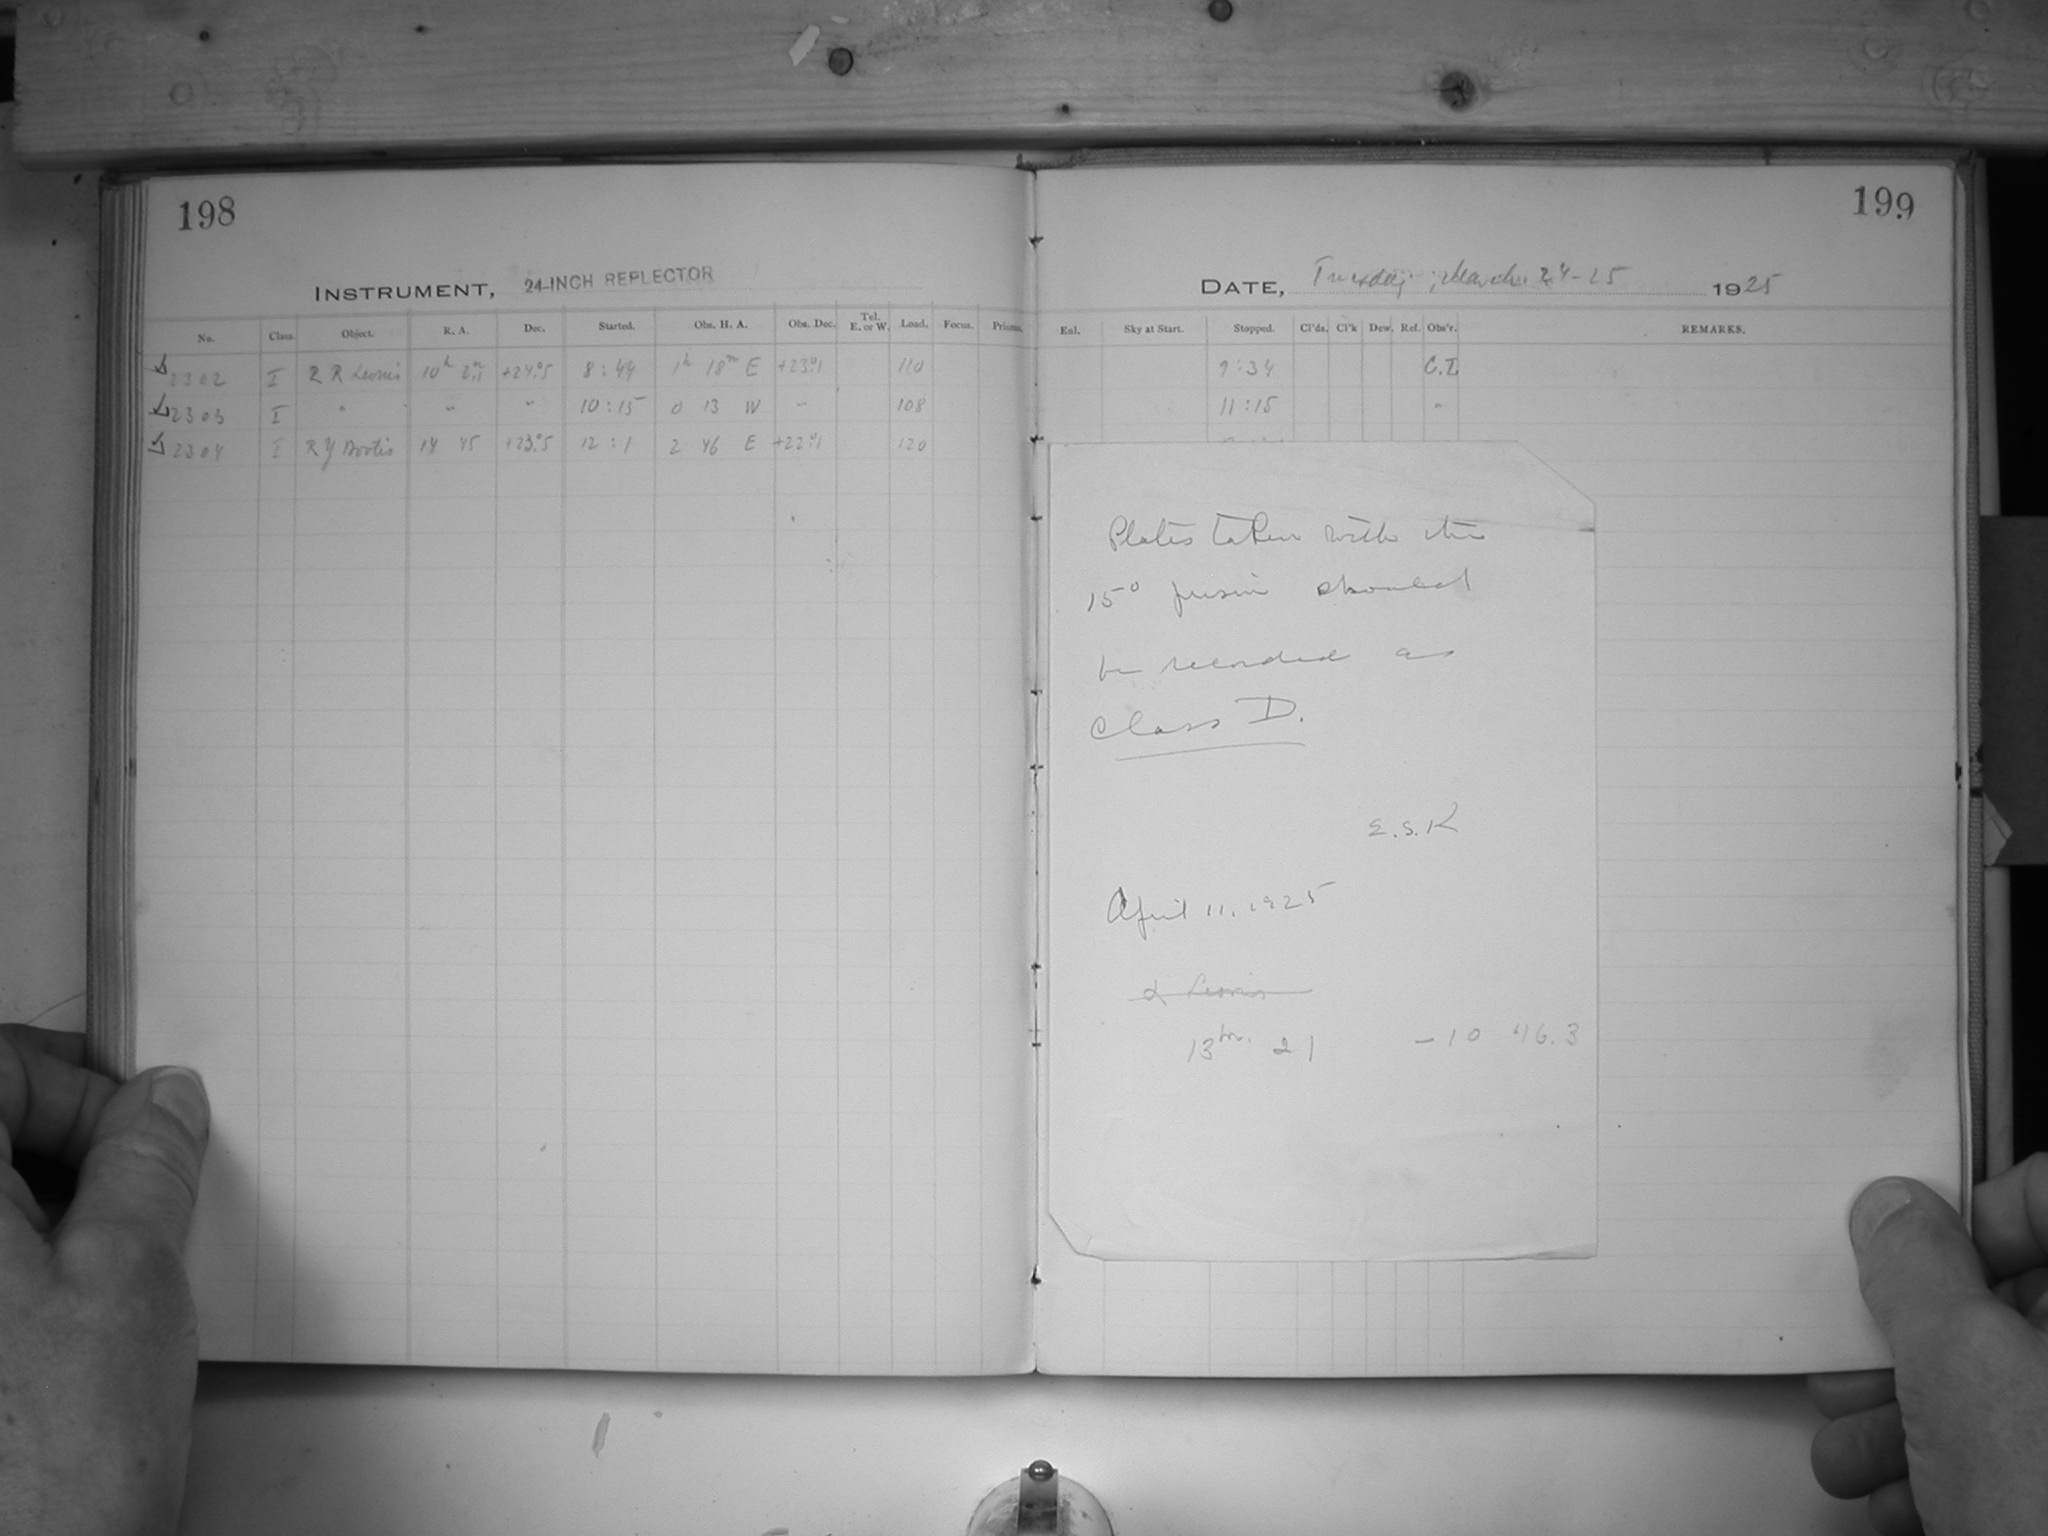 198
199
INSTRUMENT, 24-INCH REFLECTOR
DATE, Tuesday, March 24-25 1925
No. Class. Object. R. A. Dec. Started. Obs. H. A. Obs. Dec. Tel. E. or W. Load. Focus. Prisms.
Enl. Sky at Start. Stopped. Cl'ds. Cl'k Dew. Ref. Obs'r. REMARKS.
2302 I R R Leonis 10h 2m.1 +24°.5 8:44 1h 18m E +23°.1 110 9:34 C.I.
2303 I " " " 10:15 0 13 W " 108 11:15 "
2304 I R Y Bootis 14 45 +23°.5 12:1 2 46 E +22°.1 120
Plates taken with the
15° prism should
be recorded as
Class D.
E.S.K
April 11, 1925
α Leonis
13hr. 21 -10 46.3